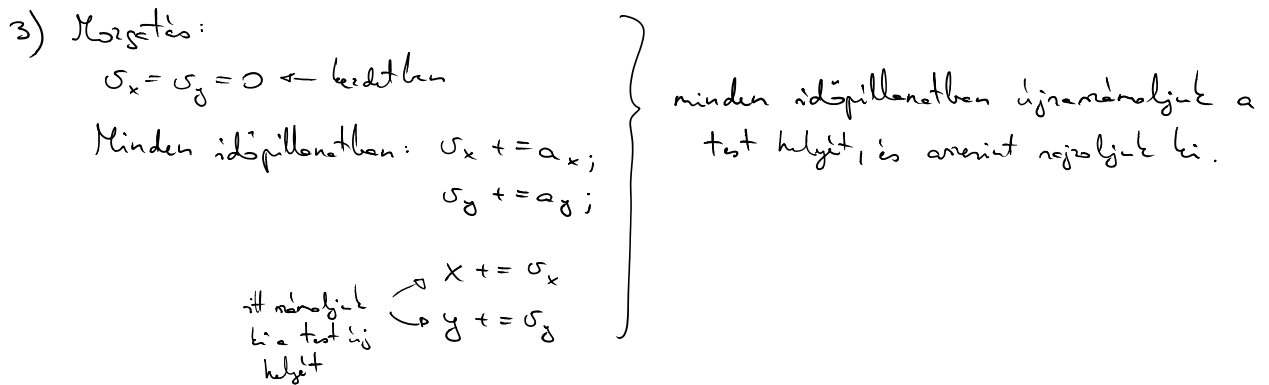 3) Mozgatás:
v_x = v_y = 0 ← kezdetben
Minden időpillanatban: v_x += a_x;
v_y += a_y;
x += v_x
y += v_y
itt számoljuk
ki a test új
helyét
minden időpillanatban újraszámoljuk a
test helyét, és aszerint rajzoljuk ki.